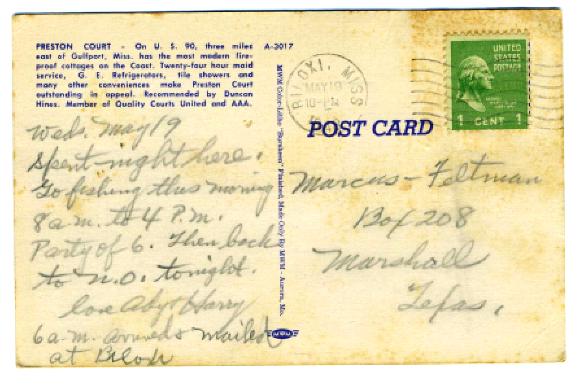 PRESTON COURT - On U. S. 90, three miles A-3017
east of Gulfport, Miss. has the most modern fire-
proof cottages on the Coast. Twenty-four hour maid
service, G. E. Refrigerators, tile showers and
many other conveniences make Preston Court
outstanding in appeal. Recommended by Duncan
Hines. Member of Quality Courts United and AAA.
Weds. May 19
Spent night here.
Go fishing this morning
8 a.m. to 4 P.m.
Party of 6. Then back
to N.O. tonight.
love Aby + Harry
6 a.m. mailed
at Biloxi
MWM Color-Litho "Burnheen" Finished, Made Only By MWM - Aurora, Mo.
MWM
BILOXI, MISS
MAY 19
10 - AM
UNITED
STATES
POSTAGE
1 CENT 1
POST CARD
Marcus - Feltman
Box 208
Marshall
Texas,